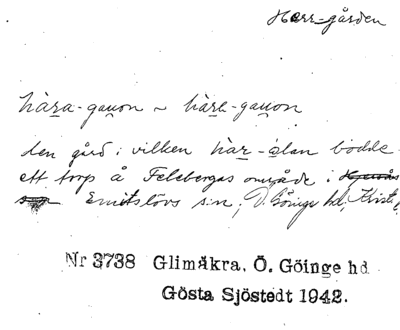 Herr-gården
hàra-gauon ~ hàra-gauon
den gård i vilken hàr-àlan bodde.
ett torp å Felebergas område i
Emitslövs sn, V. Göinge hd, Krist
Nr 3738 Glimåkra, Ö. Göinge hd
Gösta Sjöstedt 1942.